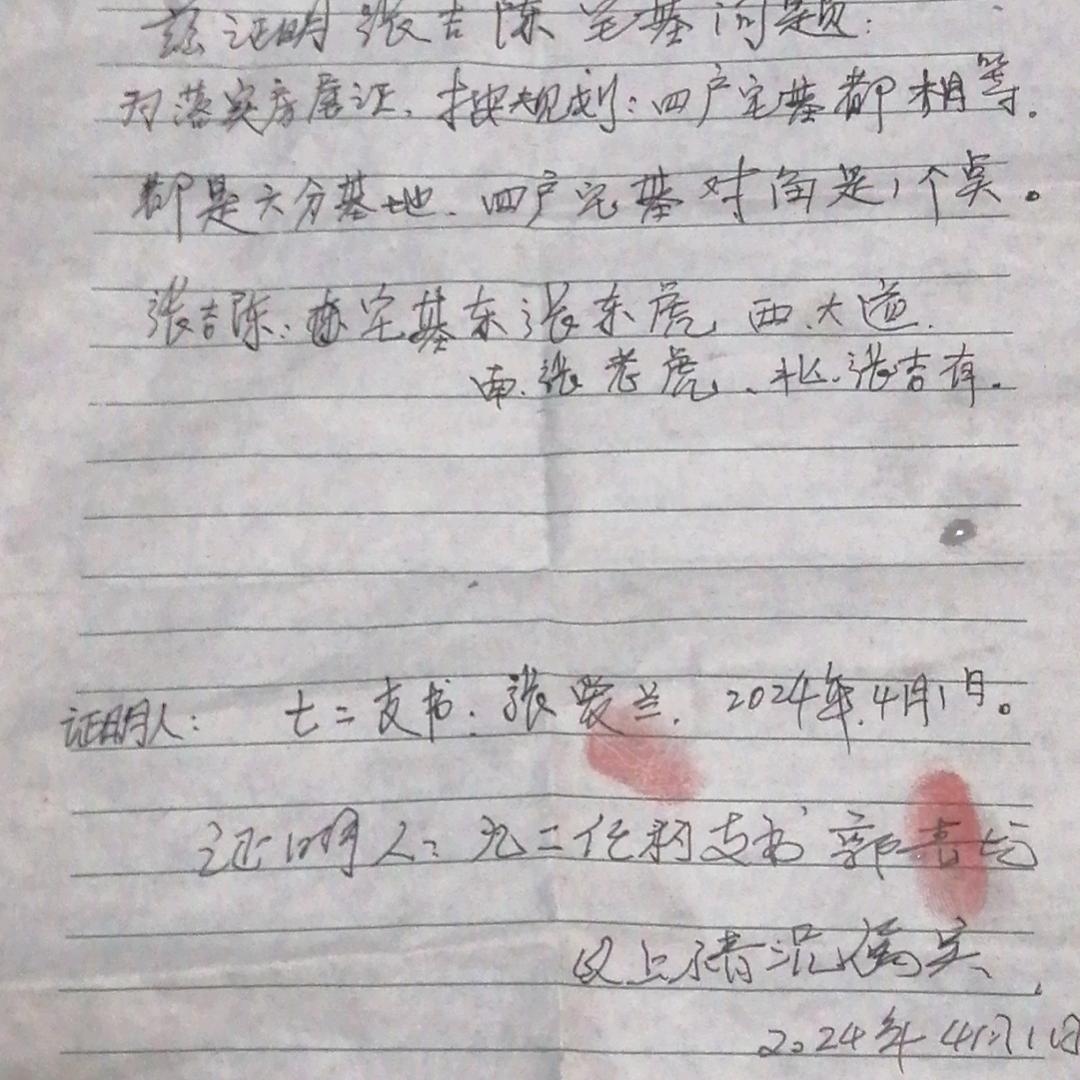 兹证明张吉陈宅基问题:
为落实房屋证、按规划:四户宅基都相等.
都是六分基地.四户宅基对角是1个点。
张吉陈:宅基东张东虎 西.大道.
南.张老虎、北.张吉有.
证明人: 七二支书.张爱兰. 2024年.4月1日。
证明人:九二任职支书 郭喜
以上情况属实、
2024年4月1日